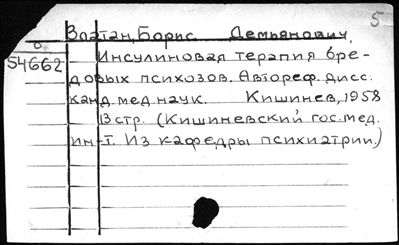 5
Влатан, Борис Демьянович.
54662
Инсулиновая терапия бре-
довых психозов. Автореф. дисс.
канд. мед. наук. Кишинев, 1958
13 стр. (Кишиневский гос. мед.
ин-т. Из кафедры психиатрии.)